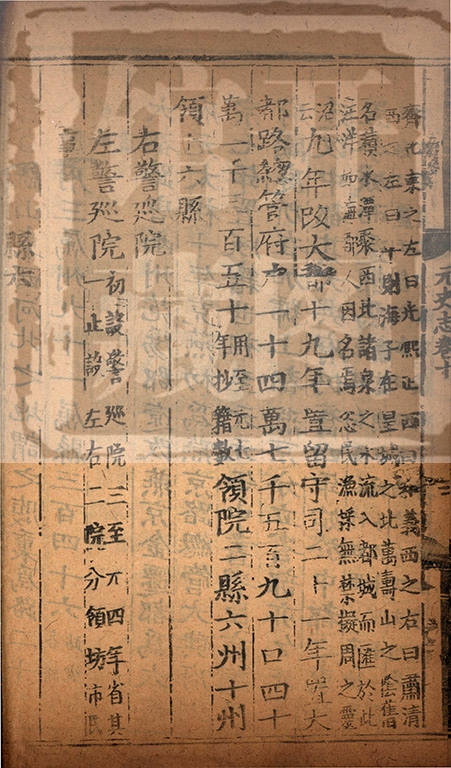 齊化東之左曰光熙正西曰和義西之右曰肅清
西之左曰平則海子在皇城之北萬壽山之陰舊
名積水潭聚西北諸泉之水流入都城而匯於此
汪洋如海都人因名焉恣民漁採無禁擬周之靈
沼云
九年改大都十九年置留守司二十一年置大
都路總管府戶一十四萬七千五百九十口四十
萬一千三百五十用至元七年抄籍數領院二縣六州十州
領十六縣
右警巡院
左警巡院初設警巡院三至元四年省其
一止設左右二院分領坊市民
元史志卷十